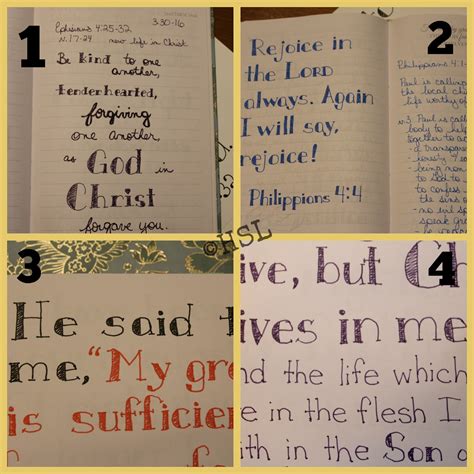 1
3-30-16
Ephesians 4:25-32
v. 17-24 new life in Christ
Be kind to one
another,
tenderhearted,
forgiving
one another,
as God in
Christ
forgave you.
2
Rejoice in
the LORD
always. Again
I will say,
rejoice!
Philippians 4:4
Philippians 4:1-
Paul is calling
the local ch
life worthy of
v3 Paul is call
body to help
together to a
- being non
to God to
to confess
the sins o
- no evil sp
speak gra
©HSL
3
He said t
me, "My gra
is sufficien
4
ive, but Ch
ives in me
nd the life which
e in the flesh I
ith in the Son o